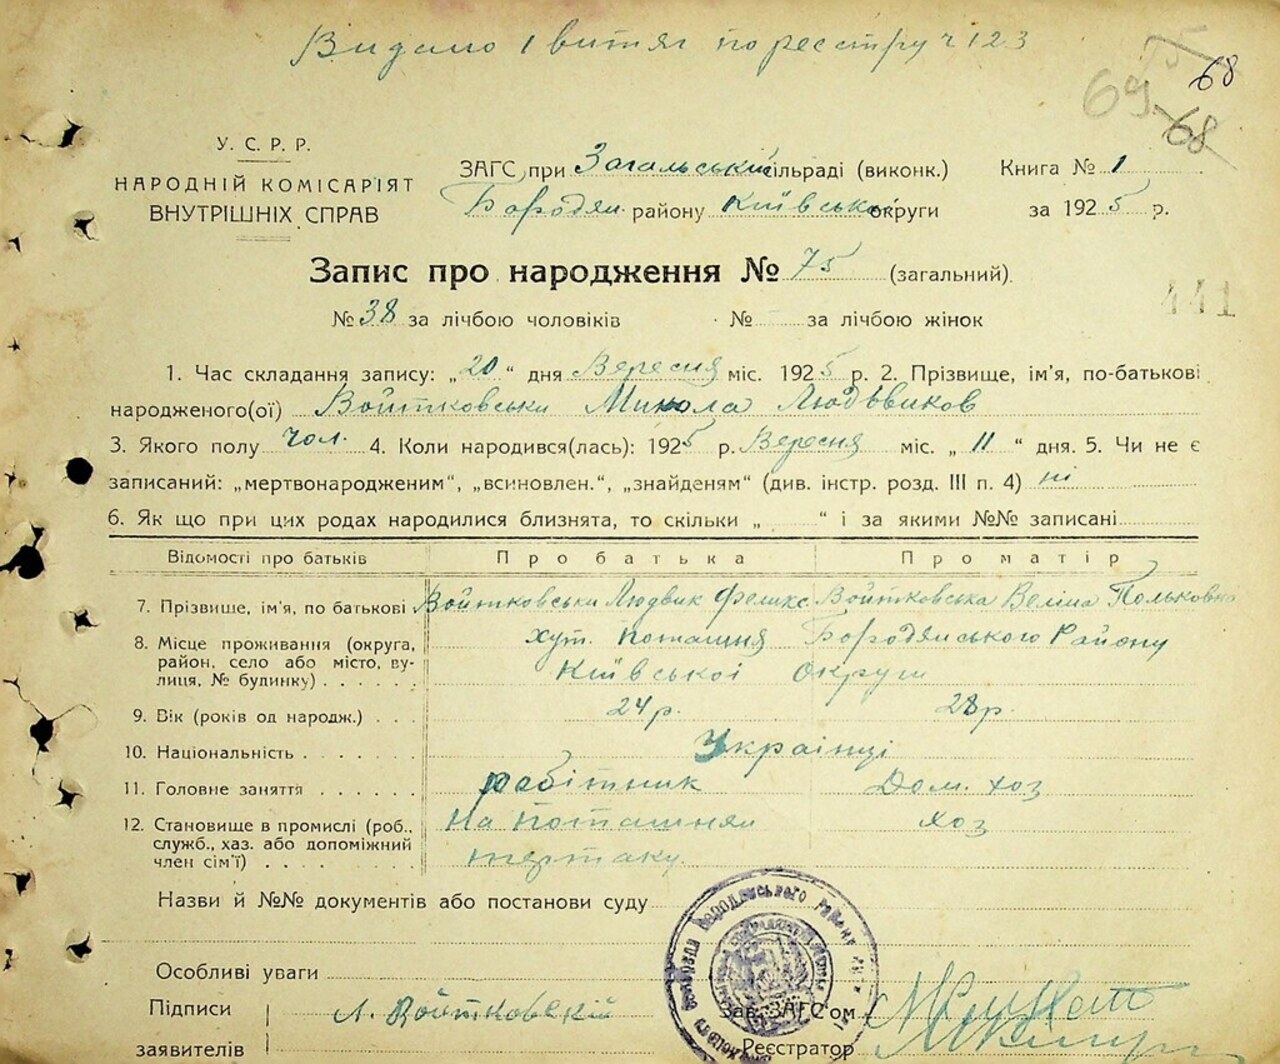 Видано 1 витяг по реєстру ч 123
75
68
69
68
У. С. Р. Р.
НАРОДНІЙ КОМІСАРІЯТ
ВНУТРІШНІХ СПРАВ
ЗАГС при Загальській сільраді (виконк.) Книга № 1
Бородян. району Київської округи за 1925 р.
Запис про народження № 75 (загальний).
441
№ 38 за лічбою чоловіків № за лічбою жінок
1. Час складання запису: „20“ дня Вересня міс. 1925 р. 2. Прізвище, ім'я, по-батькові
народженого(ої) Войтковськи Микола Людьвиков
3. Якого полу чол. 4. Коли народився(лась): 1925 р. Вересня міс. „11“ дня. 5. Чи не є
записаний: „мертвонародженим“, „всиновлен.“, „знайденям“ (див. інстр. розд. III п. 4) ні
6. Як що при цих родах народилися близнята, то скільки „ “ і за якими №№ записані
Відомості про батьків Про батька Про матір
7. Прізвище, ім'я, по батькові Войтковськи Людвик Фелікс Войтковська Веліна Польковна
8. Місце проживання (округа, район, село або місто, вулиця, № будинку) хут. Поташня Бородянського Району
Київської Округи
9. Вік (років од народж.) 24 р. 28 р.
10. Національність Українці
11. Головне заняття робітник Дом. хоз
12. Становище в промислі (роб., служб., хаз. або допоміжний член сім'ї) На поташнян хоз
тертаку.
Назви й №№ документів або постанови суду
Особливі уваги
Підписи
заявителів
Л. Войтковській
Зав. ЗАГС'ом
Реєстратор